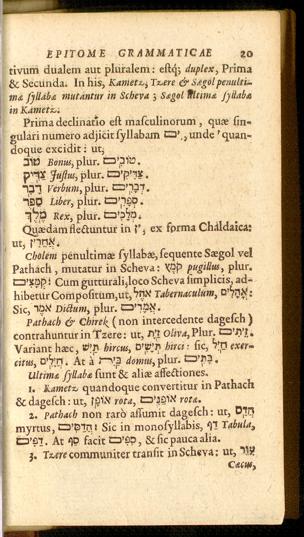 EPITOME GRAMMATICAE 20
tivum dualem aut pluralem: estq; duplex, Prima
& Secunda. In his, Kametz, Tzere & Sægol penulti-
mæ syllabæ mutantur in Scheva; Sægol ultimæ syllabæ
in Kametz.
Prima declinatio est masculinorum, quæ sin-
gulari numero adjicit syllabam ים, unde quan-
doque excidit: ut,
טוֹב Bonus, plur. טוֹבִים
צַדִּיק Justus, plur. צַדִּיקִים.
דָּבָר Verbum, plur. דְּבָרִים.
סֵפֶר Liber, plur. סְפָרִים.
מֶלֶךְ Rex, plur. מְלָכִים.
Quædam flectuntur in ין, ex forma Chaldaica:
ut, אַחֲרִין.
Cholem penultimæ syllabæ, sequente Sægol vel
Pathach, mutatur in Scheva: קֹמֶץ pugillus, plur.
קְמָצִים: Cum gutturali, loco Scheva simplicis, ad-
hibetur Compositum, ut, אֹהֶל Tabernaculum, אֲהָלִים:
Sic, אֹמֶר Dictum, plur. אֲמָרִים.
Pathach & Chirek (non intercedente dagesch)
contrahuntur in Tzere: ut, זַיִת Oliva, Plur. זֵיתִים.
Variant hæc, תַּיִשׁ hircus, תְּיָשִׁים hirci: sic, חַיִל exer-
citus, חֲיָלִים. At à בַּיִת domus, plur. בָּתִּים.
Ultimæ syllabæ sunt & aliæ affectiones.
1. Kametz quandoque convertitur in Pathach
& dagesch: ut, אוֹפָן rota, אוֹפַנִּים rotæ.
2. Pathach non rarò assumit dagesch: ut, הֲדַס
myrtus, הֲדַסִּים: Sic in monosyllabis, דַּף Tabula,
דַּפִּים. At סַף facit סִפִּים, & sic pauca alia.
3. Tzere communiter transit in Scheva: ut, עִוֵּר
Cæcus,